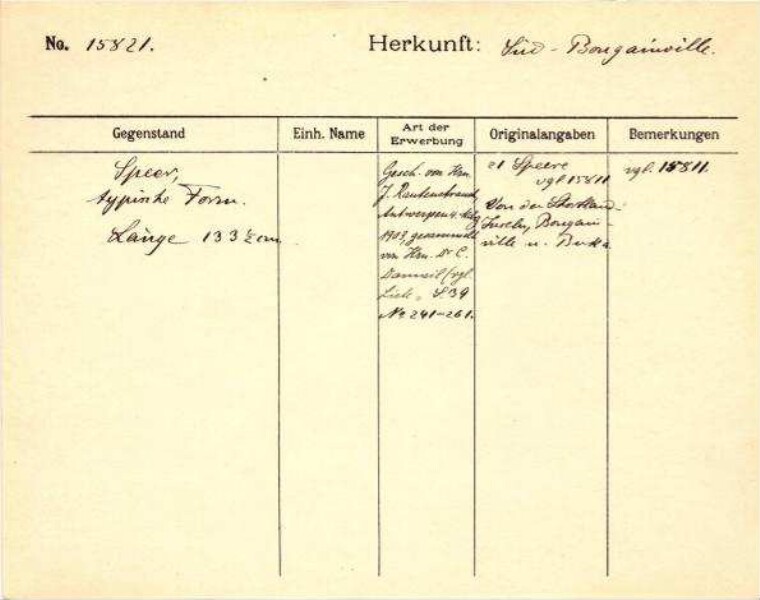 No. 15821. Herkunft: Süd-Bougainville.
Gegenstand Einh. Name Art der Erwerbung Originalangaben Bemerkungen
Speer,
typische Form.
Länge 133 ½ cm
Gesch. von Hrn.
J. Rautenstrauch
Antwerpen 4.
1909, gesammelt
von Hrn. Dr C.
(vgl.
Liste S. 39
No 241-261.
21 Speere
vgl. 15811
Von den Shortland-
Inseln, Bougain-
ville u. Buka
vgl. 15811.